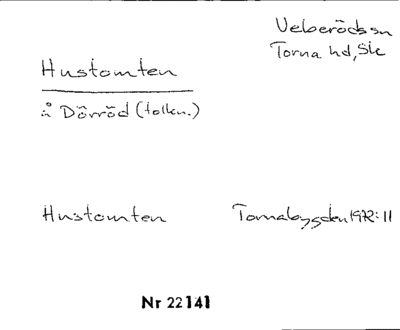 Veberöds sn
Torna hd, Sk
Hustomten
å Dörröd (folkn.)
Hustomten Tornabygden 1972:11
Nr 22141